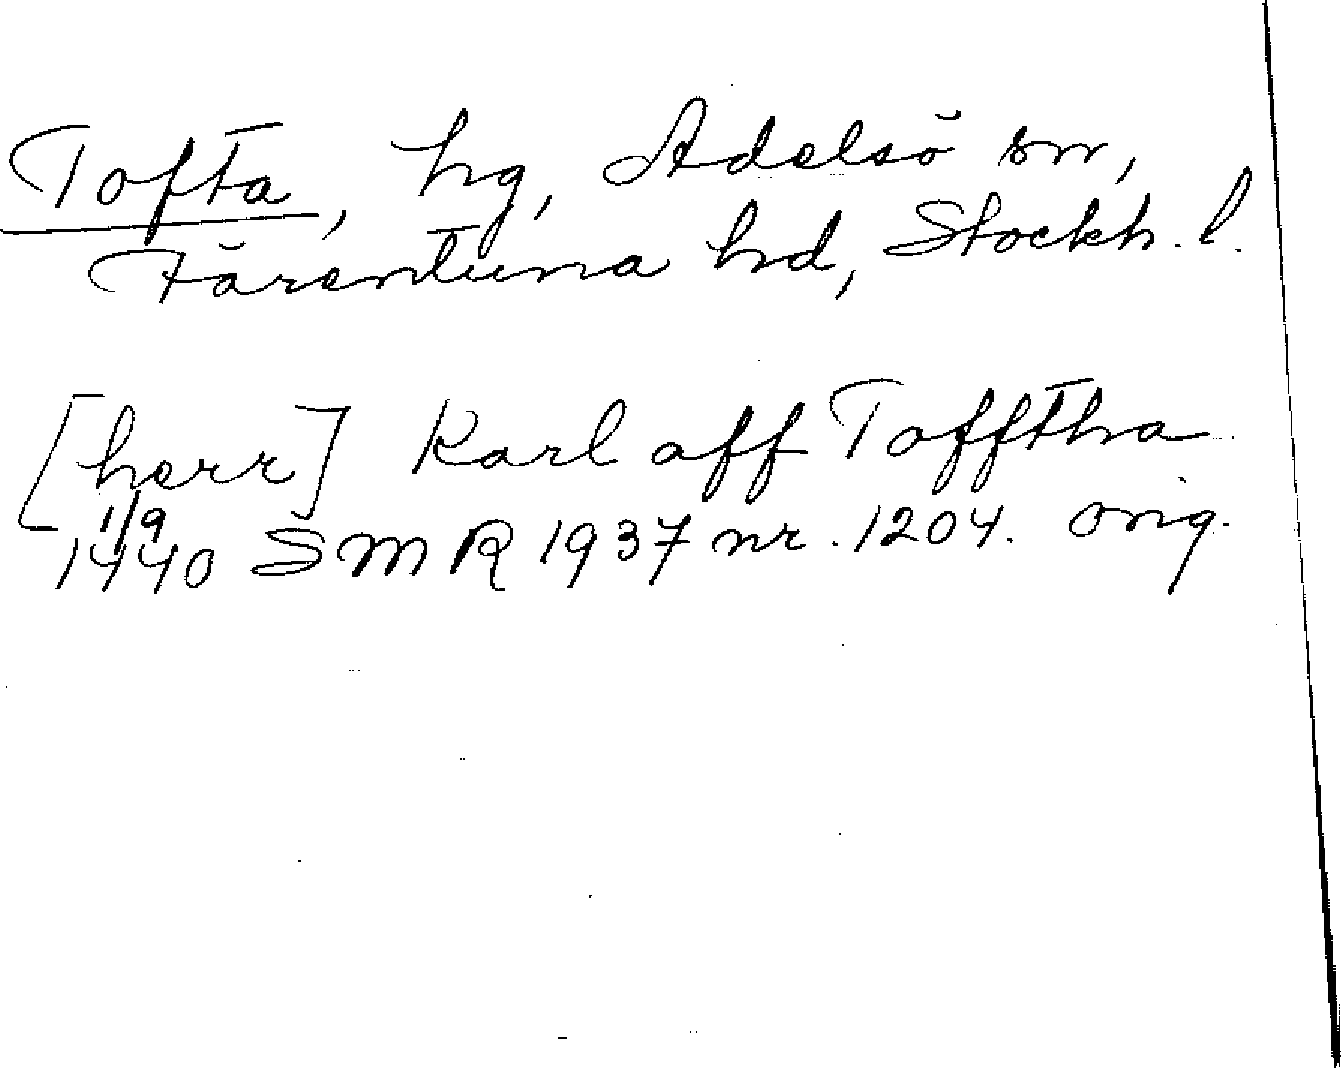 Tofta, hg, Adelsö sn,
Färentuna hd, Stockh. l.
[herr] Karl aff Tofftha
1/9
1440 SMR 1937 nr. 1204. orig.